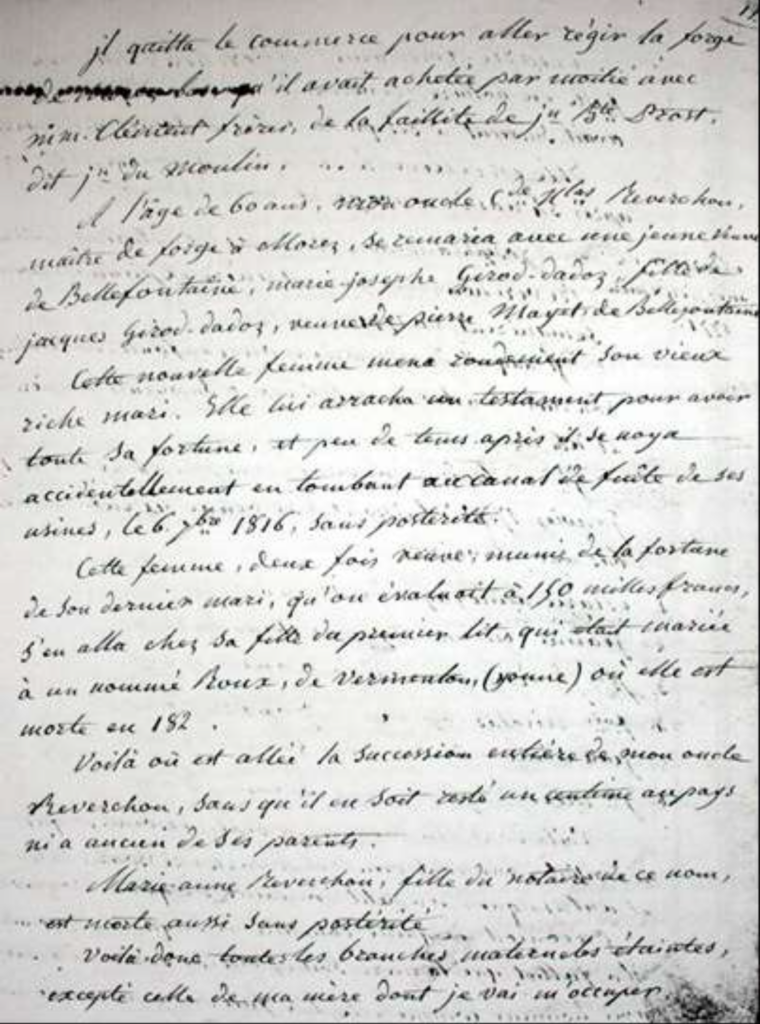 il quitta le commerce pour aller régir la forge
qu'il avait achetée par moitié avec
mm. Clément frères, de la faillite de jn Bte Prost,
dit jn du moulin.
A l'âge de 60 ans, mon oncle Cde Nlas Reverchon,
maître de forge à Morez, se remaria avec une jeune veuve
de Bellefontaine, marie-josephe Girod-dadoz, fille de
jacques Girod-dadoz, veuve de pierre Mayet de Bellefontaine
Cette nouvelle femme mena rondement son vieux
riche mari. Elle lui arracha un testament pour avoir
toute sa fortune, et peu de tems après il se noya
accidentellement en tombant au canal de fuite de ses
usines, le 6 7bre 1816, sans postérité.
Cette femme, deux fois veuve, munie de la fortune
de son dernier mari, qu'on évaluait à 150 milles francs,
s'en alla chez sa fille du premier lit qui était mariée
à un nommé Roux, de Vermenton, (yonne) où elle est
morte en 182 .
Voilà où est allée la succession entière de mon oncle
Reverchon, sans qu'il en soit resté un centime au pays
ni a aucun de ses parents.
Marie anne Reverchon, fille du notaire de ce nom,
est morte aussi sans postérité
Voilà donc toutes les branches maternelles éteintes,
excepté celle de ma mère dont je vai m'occuper.